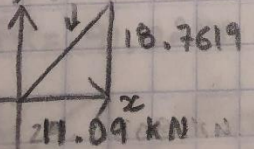 18.7619
x
11.09 KN